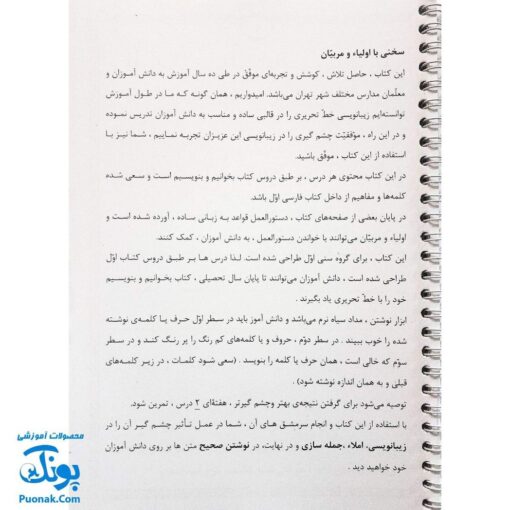 سخنی با اولیاء و مربیّان
این کتاب ، حاصل تلاش ، کوشش و تجربه‌ای موفّق در طی ده سال آموزش به دانش آموزان و
معلّمان مدارس مختلف شهر تهران می‌باشد. امیدواریم ، همان گونه که ما در طول آموزش
توانسته‌ایم زیبانویسی خطّ تحریری را در قالبی ساده و مناسب به دانش آموزان تدریس نموده
و در این راه ، موفّقیّت چشم گیری را در زیبانویسی این عزیزان تجربه نماییم ، شما نیز با
استفاده از این کتاب ، موفّق باشید.
در این کتاب محتوی هر درس ، بر طبق دروس کتاب بخوانیم و بنویسیم است و سعی شده
کلمه‌ها و مفاهیم از داخل کتاب فارسی اوّل باشد.
در پایان بعضی از صفحه‌های کتاب ، دستورالعمل قواعد به زبانی ساده ، آورده شده است و
اولیاء و مربیّان می‌توانند با خواندن دستورالعمل ، به دانش آموزان ، کمک کنند.
این کتاب ، برای گروه سنی اوّل طراحی شده است. لذا درس ها بر طبق دروس کتاب اوّل
طراحی شده است ، دانش آموزان می‌توانند تا پایان سال تحصیلی ، کتاب بخوانیم و بنویسیم
خود را با خطّ تحریری یاد بگیرند .
ابزار نوشتن ، مداد سیاه نرم می‌باشد و دانش آموز باید در سطر اوّل حرف یا کلمه‌ی نوشته
شده را خوب ببیند . در سطر دوّم ، حروف و یا کلمه‌های کم رنگ را پر رنگ کند و در سطر
سوّم که خالی است ، همان حرف یا کلمه را بنویسد . (سعی شود کلمات ، در زیر کلمه‌های
قبلی و به همان اندازه نوشته شود) .
توصیه می‌شود برای گرفتن نتیجه‌ی بهتر وچشم گیرتر ، هفته‌ای ۲ درس ، تمرین شود.
با استفاده از این کتاب و انجام سرمشق های آن ، شما در عمل تأثیر چشم گیر آن را در
زیبانویسی، املاء ،جمله سازی و در نهایت، در نوشتن صحیح متن ها بر روی دانش آموزان
خود خواهید دید .
محصولات آموزشی
پونک
Puonak.Com